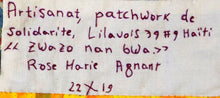 Artisanat, patchwork de
Solidarite, Lilavois 39 #9 Haïti
<< Zwazo nan bwa >>
Rose Marie Agnant
22 X 19